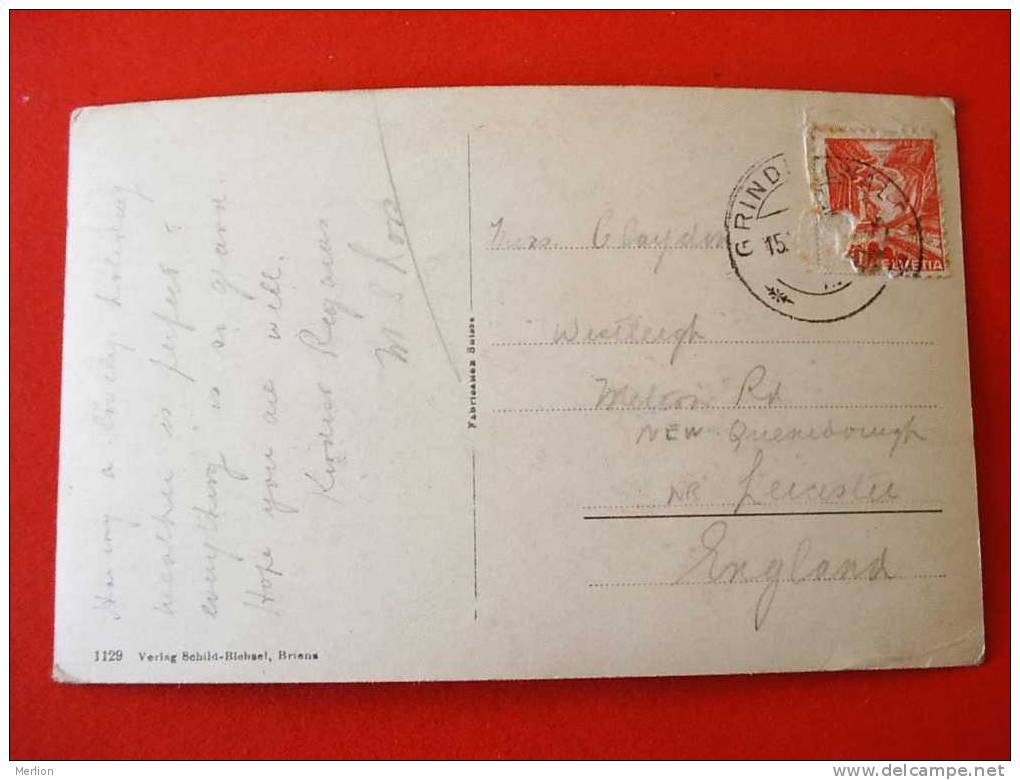 Having a lovely holiday
weather is perfect &
everything is so
Hope you are well.
Kindest Regards
M S
Fabricanen Suisse
GRINDELWALD
15.
HELVETIA
Mrs. Claydon
Westleigh
Melton Rd
NEW Queniborough
NR Leicester
England
1129 Verlag Schild-Bichsel, Brienz
Merlion
http://www.delcampe.net